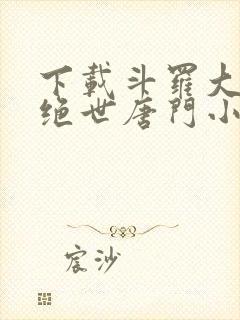 下载斗羅大
绝世唐門小
宸沙